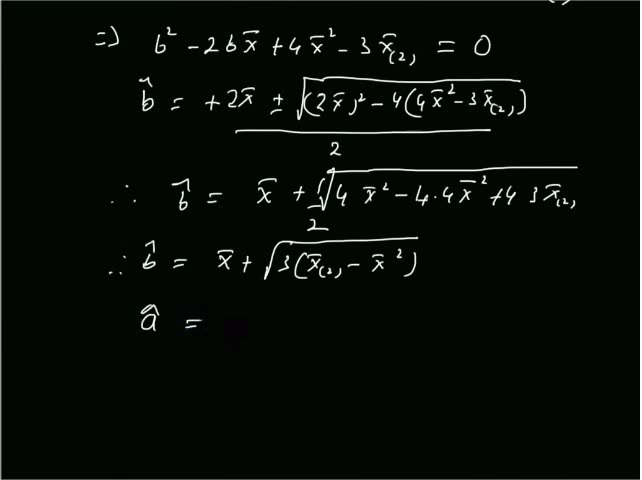 ⇒) b² - 2b x̄ + 4x̄² - 3x̄₍₂₎ = 0
b̂ = +2x̄ ± √((2x̄)² - 4(4x̄² - 3x̄₍₂₎)) / 2
∴ b̂ = x̄ + ½ √(4 x̄² - 4·4x̄² + 4 3x̄₍₂₎)
∴ b̂ = x̄ + √(3(x̄₍₂₎ - x̄²))
â =